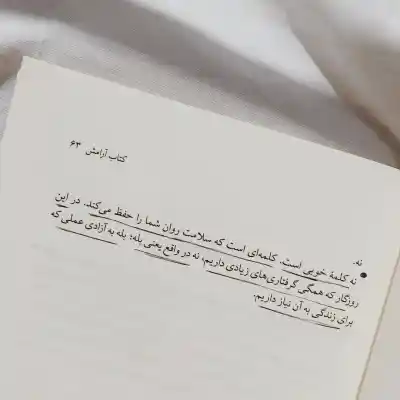 کتاب آرامش ۶۳
نه.
نه کلمهٔ خوبی است. کلمه‌ای است که سلامت روان شما را حفظ می‌کند. در این
روزگار که همگی گرفتاری‌های زیادی داریم، نه در واقع یعنی بله؛ بله به آزادی عملی که
برای زندگی به آن نیاز داریم.